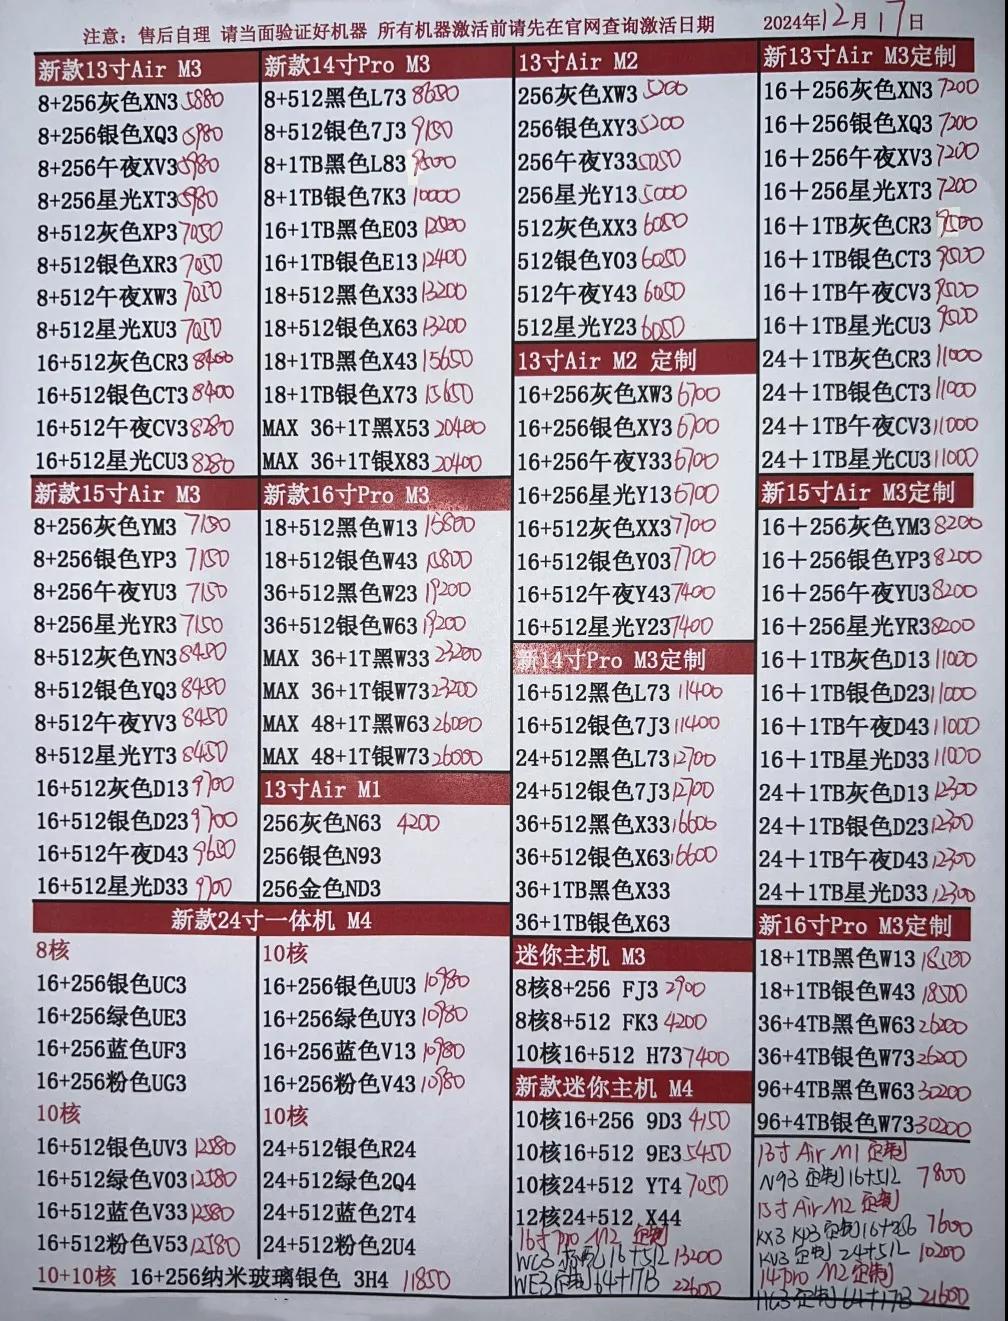 注意：售后自理 请当面验证好机器 所有机器激活前请先在官网查询激活日期 2024年12月17日
新款13寸Air M3
8+256灰色XN3 5880
8+256银色XQ3 5980
8+256午夜XV3 5980
8+256星光XT3 5980
8+512灰色XP3 7050
8+512银色XR3 7050
8+512午夜XW3 7050
8+512星光XU3 7050
16+512灰色CR3 8400
16+512银色CT3 8400
16+512午夜CV3 8280
16+512星光CU3 8280
新款15寸Air M3
8+256灰色YM3 7150
8+256银色YP3 7150
8+256午夜YU3 7150
8+256星光YR3 7150
8+512灰色YN3 8450
8+512银色YQ3 8450
8+512午夜YV3 8450
8+512星光YT3 8450
16+512灰色D13 9700
16+512银色D23 9700
16+512午夜D43 9650
16+512星光D33 9700
新款14寸Pro M3
8+512黑色L73 8650
8+512银色7J3 9150
8+1TB黑色L83 9500
8+1TB银色7K3 10000
16+1TB黑色E03 12500
16+1TB银色E13 12400
18+512黑色X33 13200
18+512银色X63 13200
18+1TB黑色X43 15650
18+1TB银色X73 15650
MAX 36+1T黑X53 20400
MAX 36+1T银X83 20400
新款16寸Pro M3
18+512黑色W13 15800
18+512银色W43 15800
36+512黑色W23 19200
36+512银色W63 19200
MAX 36+1T黑W33 23200
MAX 36+1T银W73 23200
MAX 48+1T黑W63 26000
MAX 48+1T银W73 26000
13寸Air M1
256灰色N63 4200
256银色N93
256金色ND3
新款24寸一体机 M4
8核
16+256银色UC3
16+256绿色UE3
16+256蓝色UF3
16+256粉色UG3
10核
16+512银色UV3 12580
16+512绿色V03 12580
16+512蓝色V33 12580
16+512粉色V53 12580
10核
16+256银色UU3 10980
16+256绿色UY3 10980
16+256蓝色V13 10980
16+256粉色V43 10980
10核
24+512银色R24
24+512绿色2Q4
24+512蓝色2T4
24+512粉色2U4
10+10核 16+256纳米玻璃银色 3H4 11850
13寸Air M2
256灰色XW3 5200
256银色XY3 5200
256午夜Y33 5050
256星光Y13 5000
512灰色XX3 6050
512银色Y03 6050
512午夜Y43 6050
512星光Y23 6050
13寸Air M2 定制
16+256灰色XW3 6700
16+256银色XY3 6700
16+256午夜Y33 6700
16+256星光Y13 6700
16+512灰色XX3 7700
16+512银色Y03 7700
16+512午夜Y43 7400
16+512星光Y23 7400
新14寸Pro M3定制
16+512黑色L73 11400
16+512银色7J3 11400
24+512黑色L73 12700
24+512银色7J3 12700
36+512黑色X33 16600
36+512银色X63 16600
36+1TB黑色X33
36+1TB银色X63
迷你主机 M3
8核8+256 FJ3 2900
8核8+512 FK3 4200
10核16+512 H73 7400
新款迷你主机 M4
10核16+256 9D3 4150
10核16+512 9E3 5450
10核24+512 YT4 7050
12核24+512 X44
16寸pro M2 定制
WC3 标配 16+512 13200
WE3定制 64+1TB 22600
新13寸Air M3定制
16+256灰色XN3 7200
16+256银色XQ3 7200
16+256午夜XV3 7200
16+256星光XT3 7200
16+1TB灰色CR3 9500
16+1TB银色CT3 9500
16+1TB午夜CV3 9500
16+1TB星光CU3 9500
24+1TB灰色CR3 11000
24+1TB银色CT3 11000
24+1TB午夜CV3 11000
24+1TB星光CU3 11000
新15寸Air M3定制
16+256灰色YM3 8200
16+256银色YP3 8200
16+256午夜YU3 8200
16+256星光YR3 8200
16+1TB灰色D13 11000
16+1TB银色D23 11000
16+1TB午夜D43 11000
16+1TB星光D33 11000
24+1TB灰色D13 12300
24+1TB银色D23 12300
24+1TB午夜D43 12300
24+1TB星光D33 12300
新16寸Pro M3定制
18+1TB黑色W13 18500
18+1TB银色W43 18500
36+4TB黑色W63 26200
36+4TB银色W73 26200
96+4TB黑色W63 30200
96+4TB银色W73 30200
13寸 Air M1 定制
N93 定制 16+512 7800
15寸 Air M2 定制
KX3 KP3 定制 16+256 7600
KV3 定制 24+512 10200
14pro M2 定制
HG3 定制 64+1TB 21600